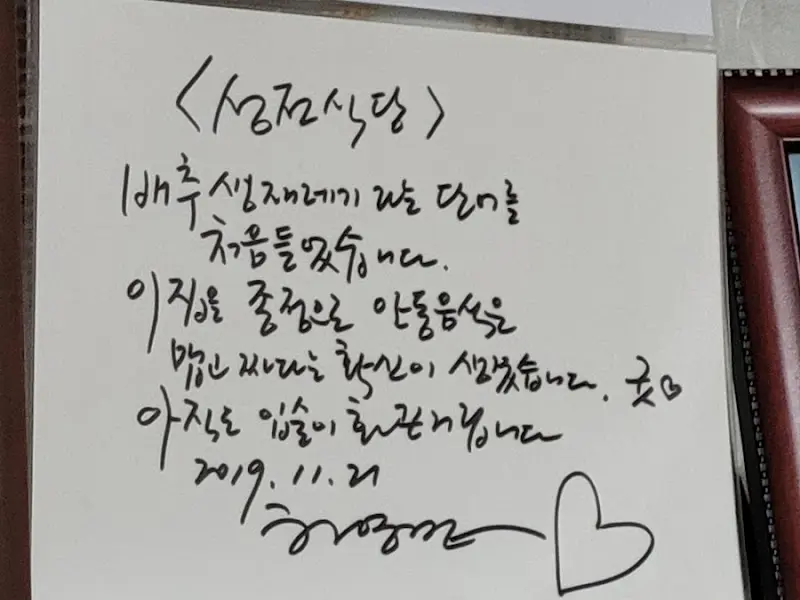 <성전식당>
배추 생재레기 라는 단어를
처음들었습니다.
이집을 종점으로 안동음식은
맵고 짜다는 확신이 생겼습니다. 굿♡
아직도 입술이 화끈거립니다
2019. 11. 21
허영만 ♡